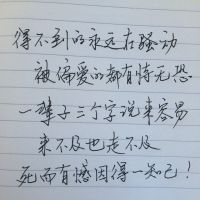 得不到的永远在骚动
被偏爱的都有恃无恐
一辈子三个字说来容易
来不及也走不及
死而有憾因得一知己！